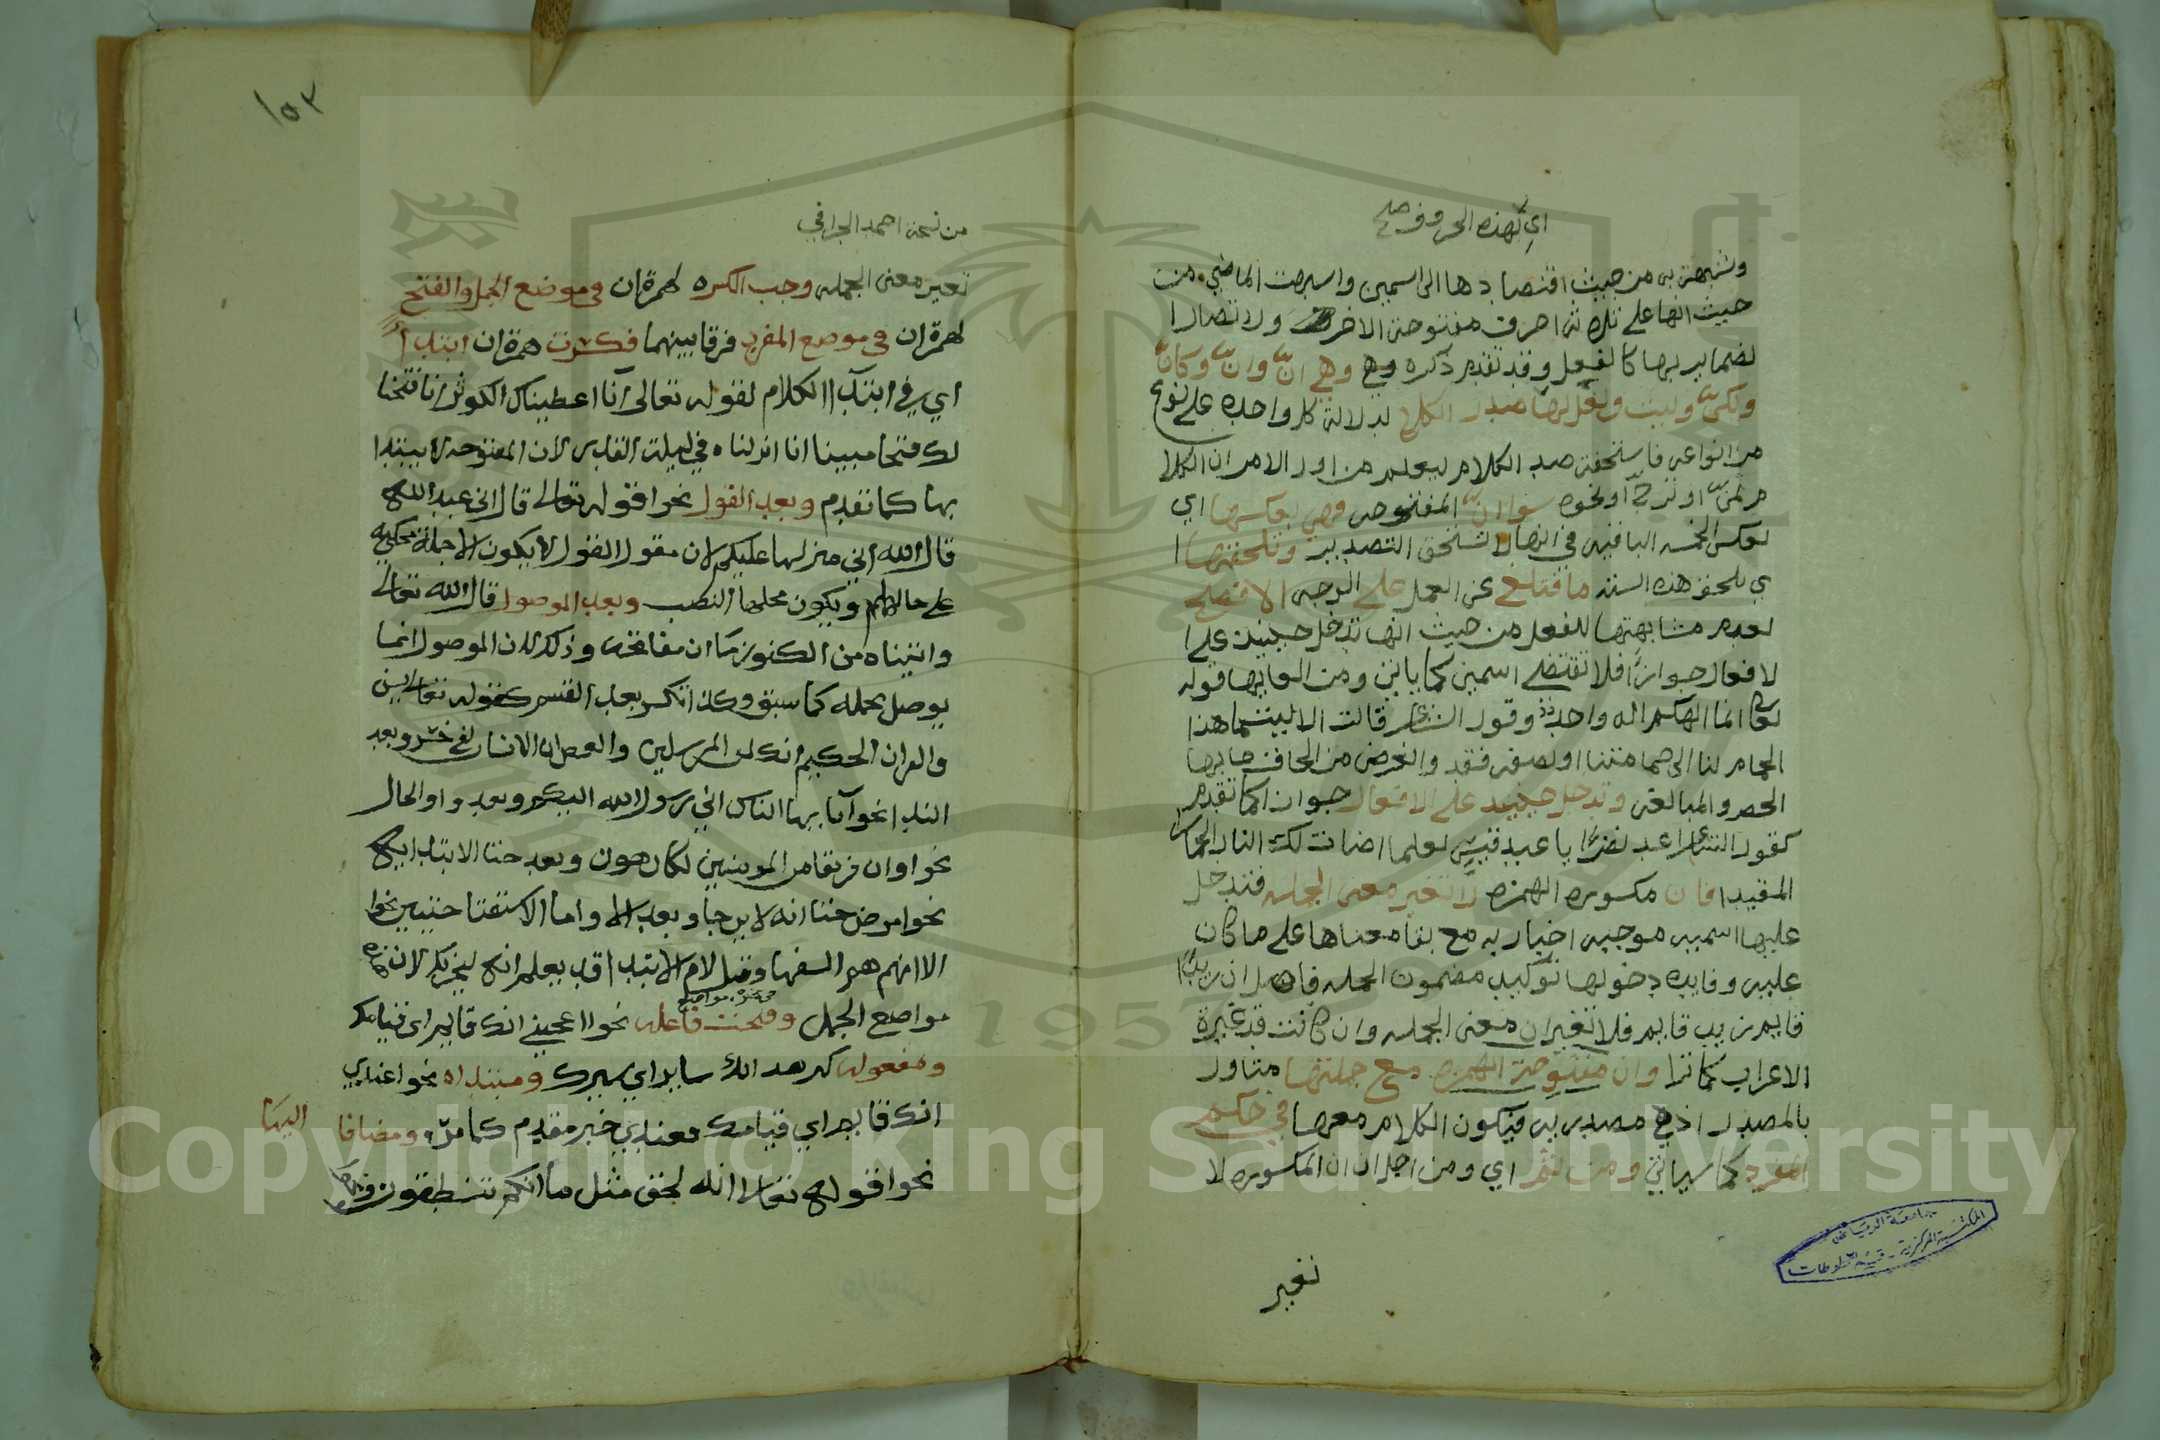 اي بهذه الحروف صح
وشبهت به من حيث اقتضاؤها الى اسمين واشبهت الماضي من
حيث انها على ثلاثة احرف مفتوحة الاخر ولاتصال ا
لضماير بها كالفعل وقد تقدم ذكره وهي وهي انّ وانّ وكأنّ
ولكنّ وليت ولعل لها صدر الكلام لدلالة كل واحده على نوع
من انواعه فاستحقت صدر الكلام ليعلم من اول الامر ان الكلا
م تمنّ او ترجّ او نحوه سوا انّ المفتوحه فهي بعكسها اي
بعكس الخمسه الباقيه في انها لا تستحق التصدير وتلحقها ا
ي تلحق هذه السته ما فتلغى عن العمل على الوجه الافصح
لعدم مشابهتها للفعل من حيث انها تدخل حينئذ على ا
لافعال جوازا فلا تقتضي اسمين كما ياتي ومن الغايها قوله
تعالى انما الهكم اله واحد وقول الشاعر قالت الا ليتما هذا
الحمام لنا الى حمامتنا او نصفه فقد والغرض من الحاق ما بها
الحصر والمبالغه وتدخل حينئذ على الافعال جوازا كما تقدم
كقول الشاعر اعد نظرا يا عبد قيس لعلما اضات لك النار الحمار
المقيدا فان مكسورة الهمزه لا تغير معنى الجمله فتدخل
عليها اسميه موجبه اخباريه مع بقا معناها على ما كان
عليه وفايدة دخولها توكيد مضمون الجمله فان ان زيدا
قايم زيد قايم فلا تغير ان معنى الجمله وان كانت قد غيرة
الاعراب كما ترا وان مفتوحة الهمزه مع جملتها متاول
بالمصدر اذ هي مصدريه فيكون الكلام معها في حكم
المفرد كما سياتي ومن ثم اي ومن اجل ان ان المكسوره لا
تغير
جامعة الرياض
المكتبة المركزية - قسم المخطوطات
١٥٢
من نسخة احمد الجرافي
تغير معنى الجمله وجب الكسره لهمزة ان في موضع الجمل والفتح
لهمزة ان في موضع المفرد فرقا بينهما فكسرت همزة ان ابتداً
اي في ابتداا الكلام لقوله تعالى انا اعطيناك الكوثر انا فتحنا
لك فتحا مبينا انا انزلناه في ليلة القدر لان المفتوحه لا يبتدا
بها كما تقدم وبعد القول نحوا قوله تعالى قال اني عبد الله
قال الله اني منزلها عليكم لان مقول القول لا يكون الا جملة محكيه
على حالها ويكون محلها النصب وبعد الموصول قال الله تعالى
واتيناه من الكنوز ما ان مفاتحه وذلك لان الموصول انما
يوصل بجمله كما سبق وكذا تكسر بعد القسم كقوله تعالى يس
والقران الحكيم انك لمن المرسلين والعصر ان الانسان لفي خسر وبعد
الندا نحو يا ايها الناس اني رسول الله اليكم وبعد واو الحال
نحوا وان فريقا من المومنين لكارهون وبعد حتا الابتدائيه
نحوا مرض حتا انه لا يرجا وبعد الا واما الاستفتاحيتين نحوا
الا انهم هم السفها وقبل لام الابتدا قد يعلم انه ليحزنك لان هذه
مواضع الجمل وفتحت فاعله نحوا اعجبني انك قايم اي قيامك
ومفعوله كرهت انك ساير اي سيرك ومبتداه نحوا عندي
انك قايم اي قيامك فعندي خبر مقدم كما مرّ ومضافا اليها
نحوا قوله تعالى انه لحق مثل ما انكم تنطقون